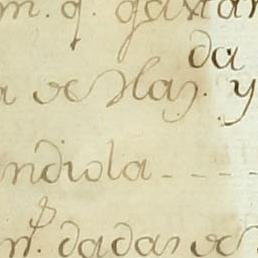 m. q. gastar
da
a de Has. y
ndiola - - - -
n. dadas de